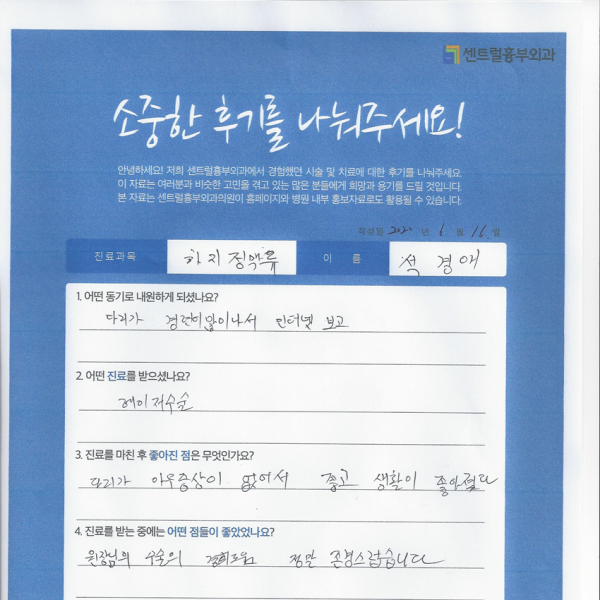 센트럴흉부외과
소중한 후기를 나눠주세요!
안녕하세요! 저희 센트럴흉부외과에서 경험했던 시술 및 치료에 대한 후기를 나눠주세요.
이 자료는 여러분과 비슷한 고민을 겪고 있는 많은 분들에게 희망과 용기를 드릴 것입니다.
본 자료는 센트럴흉부외과의원이 홈페이지와 병원 내부 홍보자료로도 활용될 수 있습니다.
작성일 2020 년 6 월 16 일
진료과목 하지정맥류 이 름 석경애
1. 어떤 동기로 내원하게 되셨나요?
다리가 경련이많이나서 인터넷 보고
2. 어떤 진료를 받으셨나요?
레이저수술
3. 진료를 마친 후 좋아진 점은 무엇인가요?
다리가 아무증상이 없어서 좋고 생활이 좋아졌다
4. 진료를 받는 중에는 어떤 점들이 좋았었나요?
원장님의 수술의 정말 존경스럽습니다